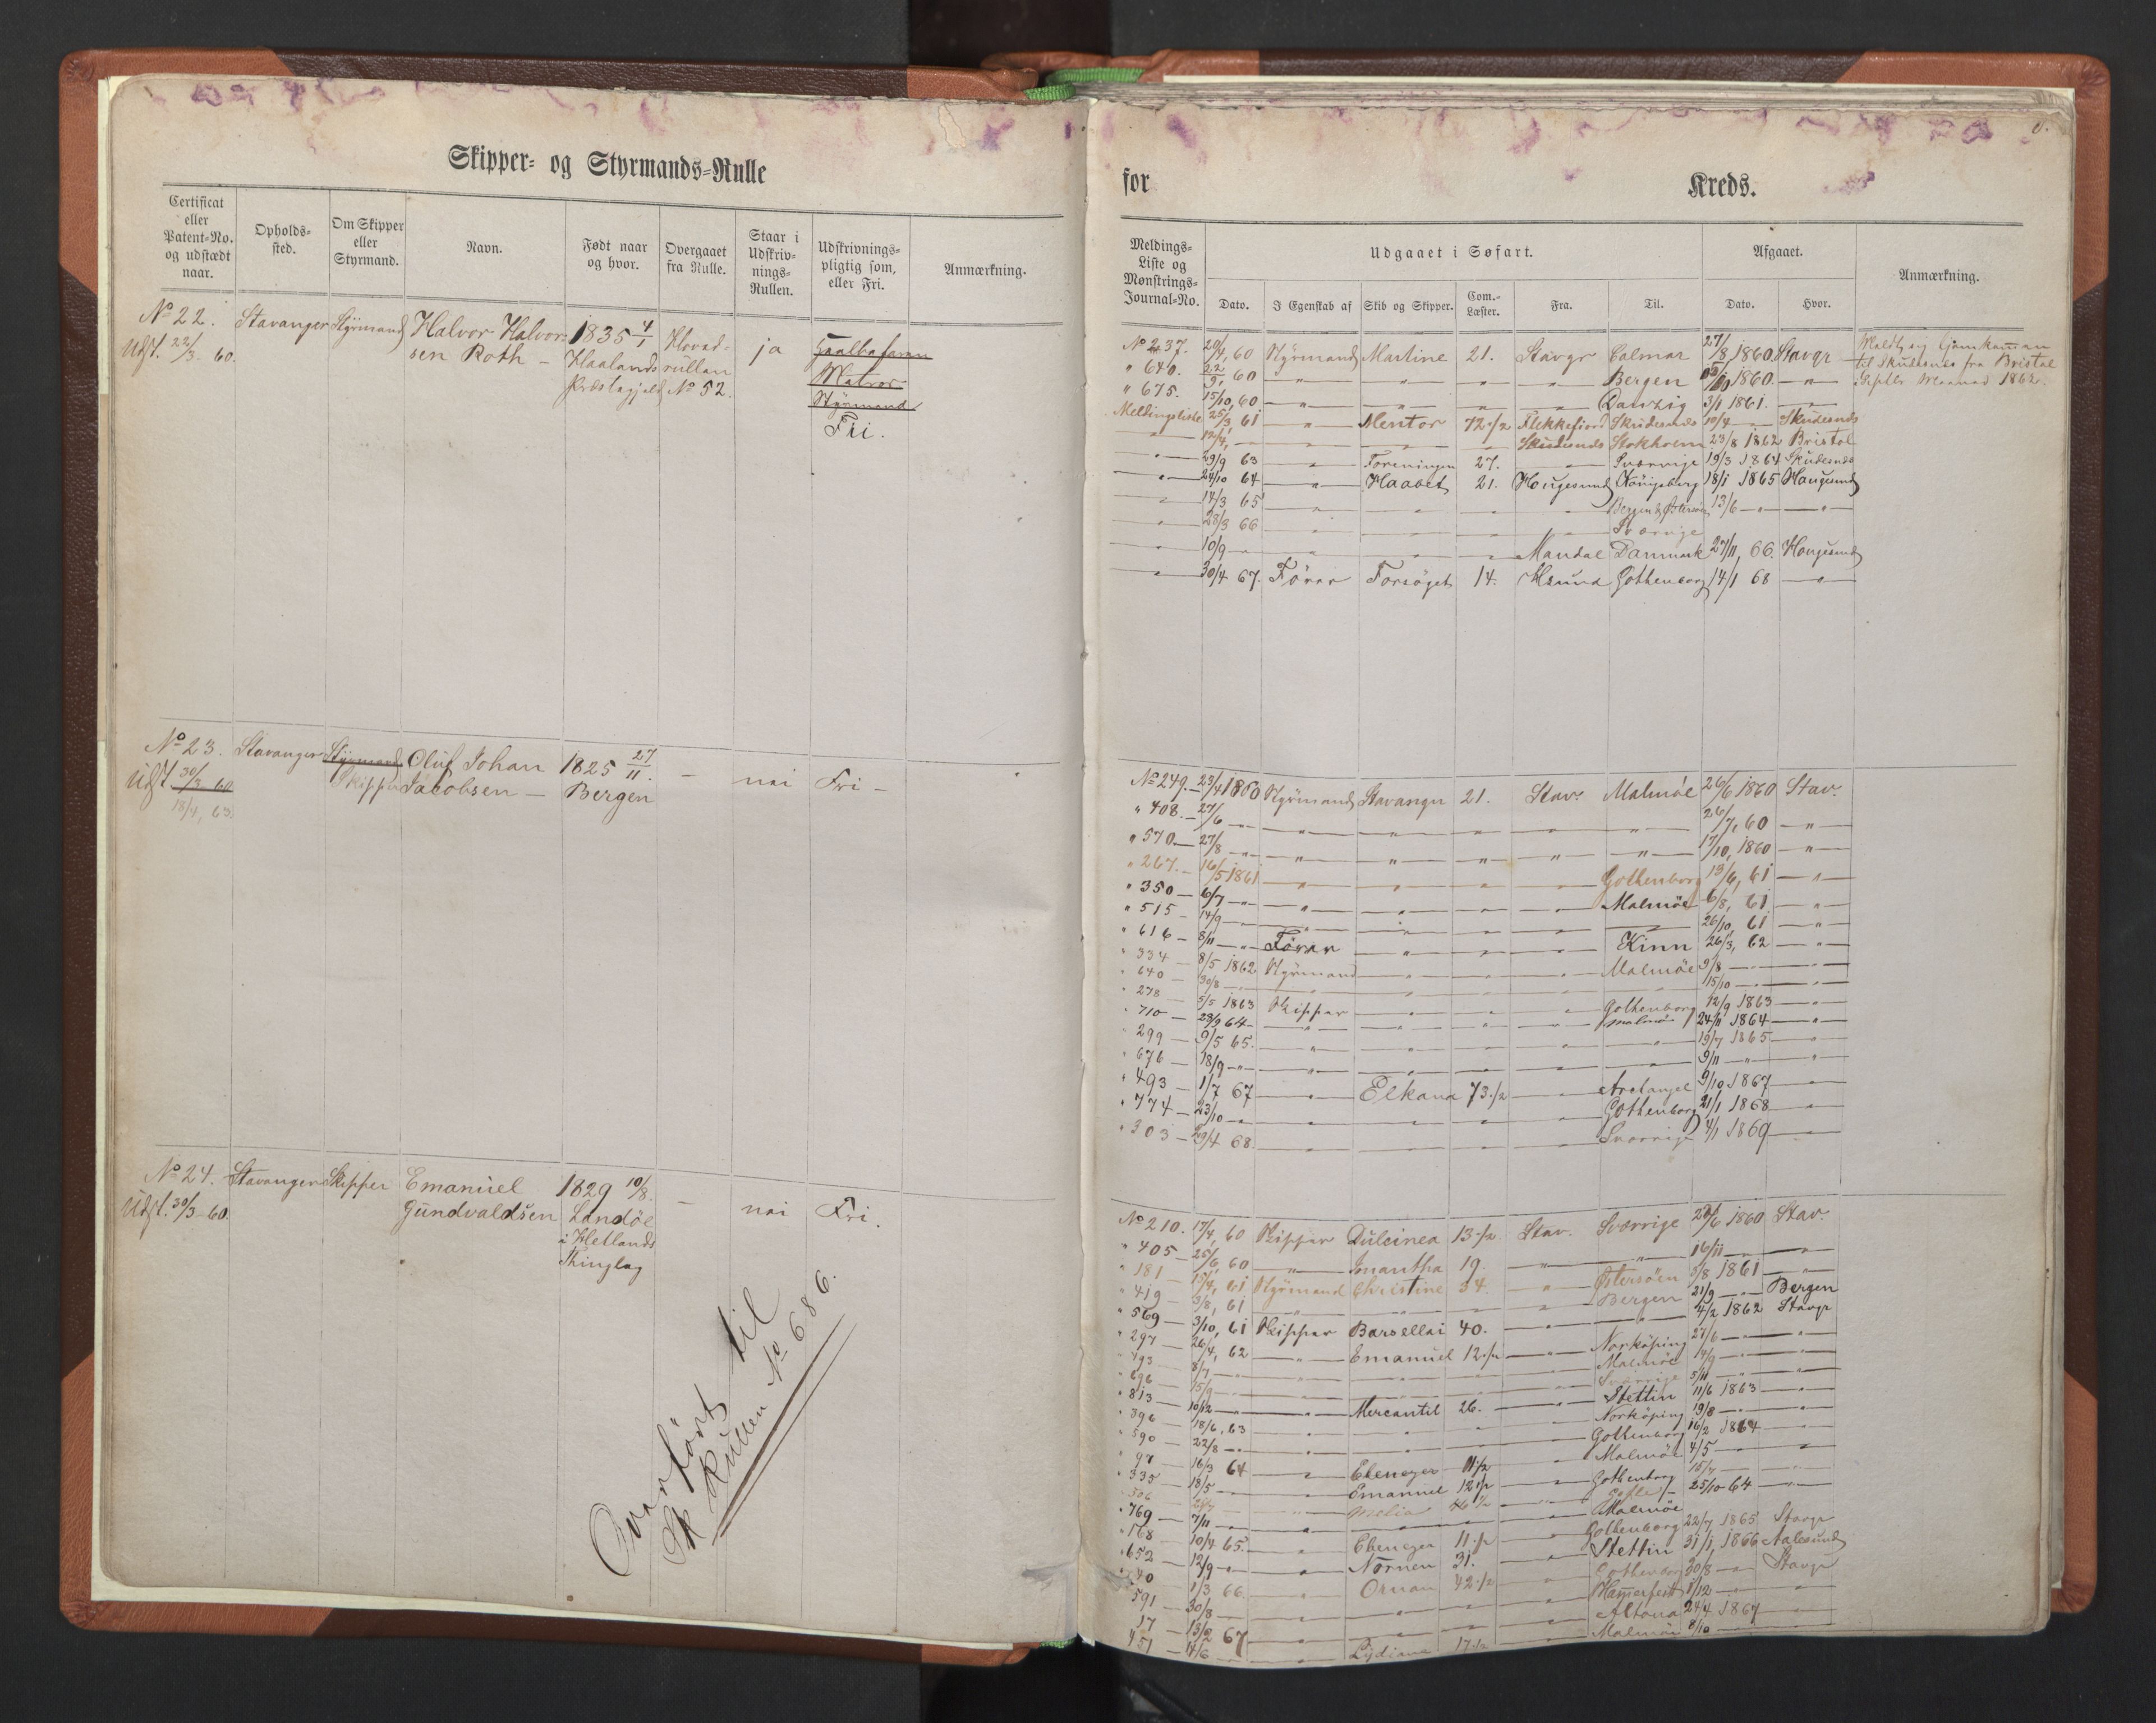 Skipper- og Styrmands-Rulle
Certificat eller Patent-No. og udstædt naar.
Opholds-sted.
Om Skipper eller Styrmand.
Navn.
Født naar og hvor.
Overgaaet fra Rulle.
Staar i Udskriv-nings-Rullen.
Udskrivnings-pligtig som, eller Fri.
Anmærkning.
No 22. Stavanger Styrmand Halvor Halvor- 1835 4/1 Hoved- ja
Udst. 22/3 60. sen Roth - Haalands rullen Matros
Præstegjeld No 52. Styrmand
Fri.
No 23. Stavanger Styrmand Oluf Johan 1825 27/11. - nei Fri -
Udst 30/3 60 Skipper Jacobsen - Bergen
18/4, 63.
No 24. Stavanger Skipper Emanuel 1829 10/8. - nei Fri.
Udst. 30/3 60. Gundvaldsen Landöe
i Hetlands
Thinglag
Overført til
Sk Rullen No 686.
for Kreds.
Meldings-Liste og Mønstrings-Journal-No.
Udgaaet i Søfart.
Afgaaet.
Anmærkning.
Dato. I Egenskab af Skib og Skipper. Com.-Læster. Fra. Til. Dato. Hvor.
No 237. 20/4, 60 Styrmand Martine 21. Stavgr Calmar 27/8 1860 Stavgr
" 640. 22/9, 60 " " " " Bergen 1860. "
til Skudesnes fra Bristol
" 675. 15/10, 60 " " " Danzig 3/1 1861. "
Maaned 1862.
Meldingsliste 25/3, 61 " Mentor 72 1/2 Flekkefiord Skudesnes 10/4 " Skudesnes
" 12/4, " " " " Skudesnes Stokholm 23/8 1862 Bristol
" 29/9 63 " Foreningen 27. " Sverrige 19/3 1864 Skudesnes
" 24/10 64 " Haabet 21. Hougesund Königsberg 18/1 1865 Haugesund
" 14/3 65 " " " " Bergen & Østersøen 13/6 " "
" 28/3 66 " " " " Sverrige
" 10/9 " " " " Mandal Danmark 27/11, 66. Hougesund
" 30/4 67. Fører Forsöget 14. Hsund Gothenborg 14/1 68 "
No 249. 23/4 1860 Styrmand Stavanger 21. Stav. Malmöe 26/6 1860 Stav.
" 408. 27/6 " " " " " " 26/7, 60 "
" 570. 27/8 " " " " " " 17/10, 1860 "
" 267. 16/5 1861 " " " " Gothenborg 13/6, 61 "
" 350 6/7 " " " " " Malmöe 6/8, 61 "
" 515 14/9 " " " " " " 26/10, 61 "
" 616 8/11 " Fører " " " Kinn 26/3, 62 "
" 334 8/5 1862 Styrmand " " " Malmöe 9/8 " "
" 640 30/8 " " " " " " 15/10 " "
" 278 5/5 1863 Skipper " " " Gothenborg 12/9 1863 "
" 710 28/9 64 " " " " Malmöe 24/11 1864 "
" 299 9/5 65. " " " " " 19/7 1865 "
" 676 18/9 " " " " " " 9/11 " "
" 493 1/7 67 " Elkana 73 1/2 " Archangel 9/10 1867 "
" 774 23/10 " " " " " Gothenborg 21/1 1868 "
" 303 29/4 68. " " " " Sverrige 4/1 1869 "
No 210. 17/4, 60 Skipper Dulcinea 13 1/2 Stav. Sverrige 1860 Stav.
" 405 25/6, 60 " Imantha 19. " " 16/11 " "
" 181 61 Styrmand Christine 34. " Østersöen 3/8 1861 "
" 419 3/8, 61 " " " " Bergen 21/9 " Bergen
" 569 3/10, 61 Skipper 40. " " 4/2 1862 Stavgr
" 297 26/4, 62 " Emanuel 12 1/2 " Norköping 27/6 " "
" 493 8/7 " " " " " Malmöe "
" 696 15/9 " " " " " Sverrige 5/11 " "
" 813 10/12 " " Mercantil 26. " Stettin 11/6 1863 "
" 396 18/6, 63 " " " " Norköping 19/8 " "
" 590 22/8 " " " " " Gothenborg 16/2 1864 "
" 97 16/3 64 " Ebenezer 11 1/2 " Malmöe 4/5 " "
" 335 18/5 " " Emanuel 12 1/2 " Gothenborg "
" " 46 1/2 " Gefle 25/10 64 "
" 769 7/11 " " " " " Malmöe
" 168 65. " Ebenezer 11 1/2 " Gothenborg 22/7 1865 Stavgr
" 652 12/9 " " Nornen 31. " Stettin 31/1, 1866 Aalesund
" 40 1/3 66 " Ornan 42 1/2 " Gothenborg 30/8 " Stavgr
" 591 30/8 " " " " " Hamerfest 1/12 " "
" 17 13/2 67 " " " " Altona 24/4 1867 "
" 451 14/6 " " Lydiana 17 1/2 " Malmöe 8/10 " "